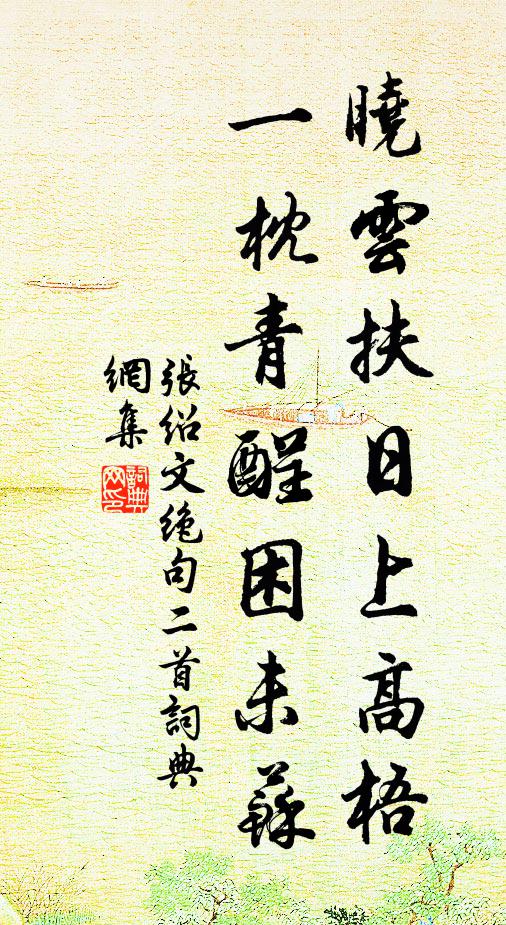 曉雲扶日上高梧
一枕青酲困未蘇
張紹文絶句二首詞典
網集
詞典網印